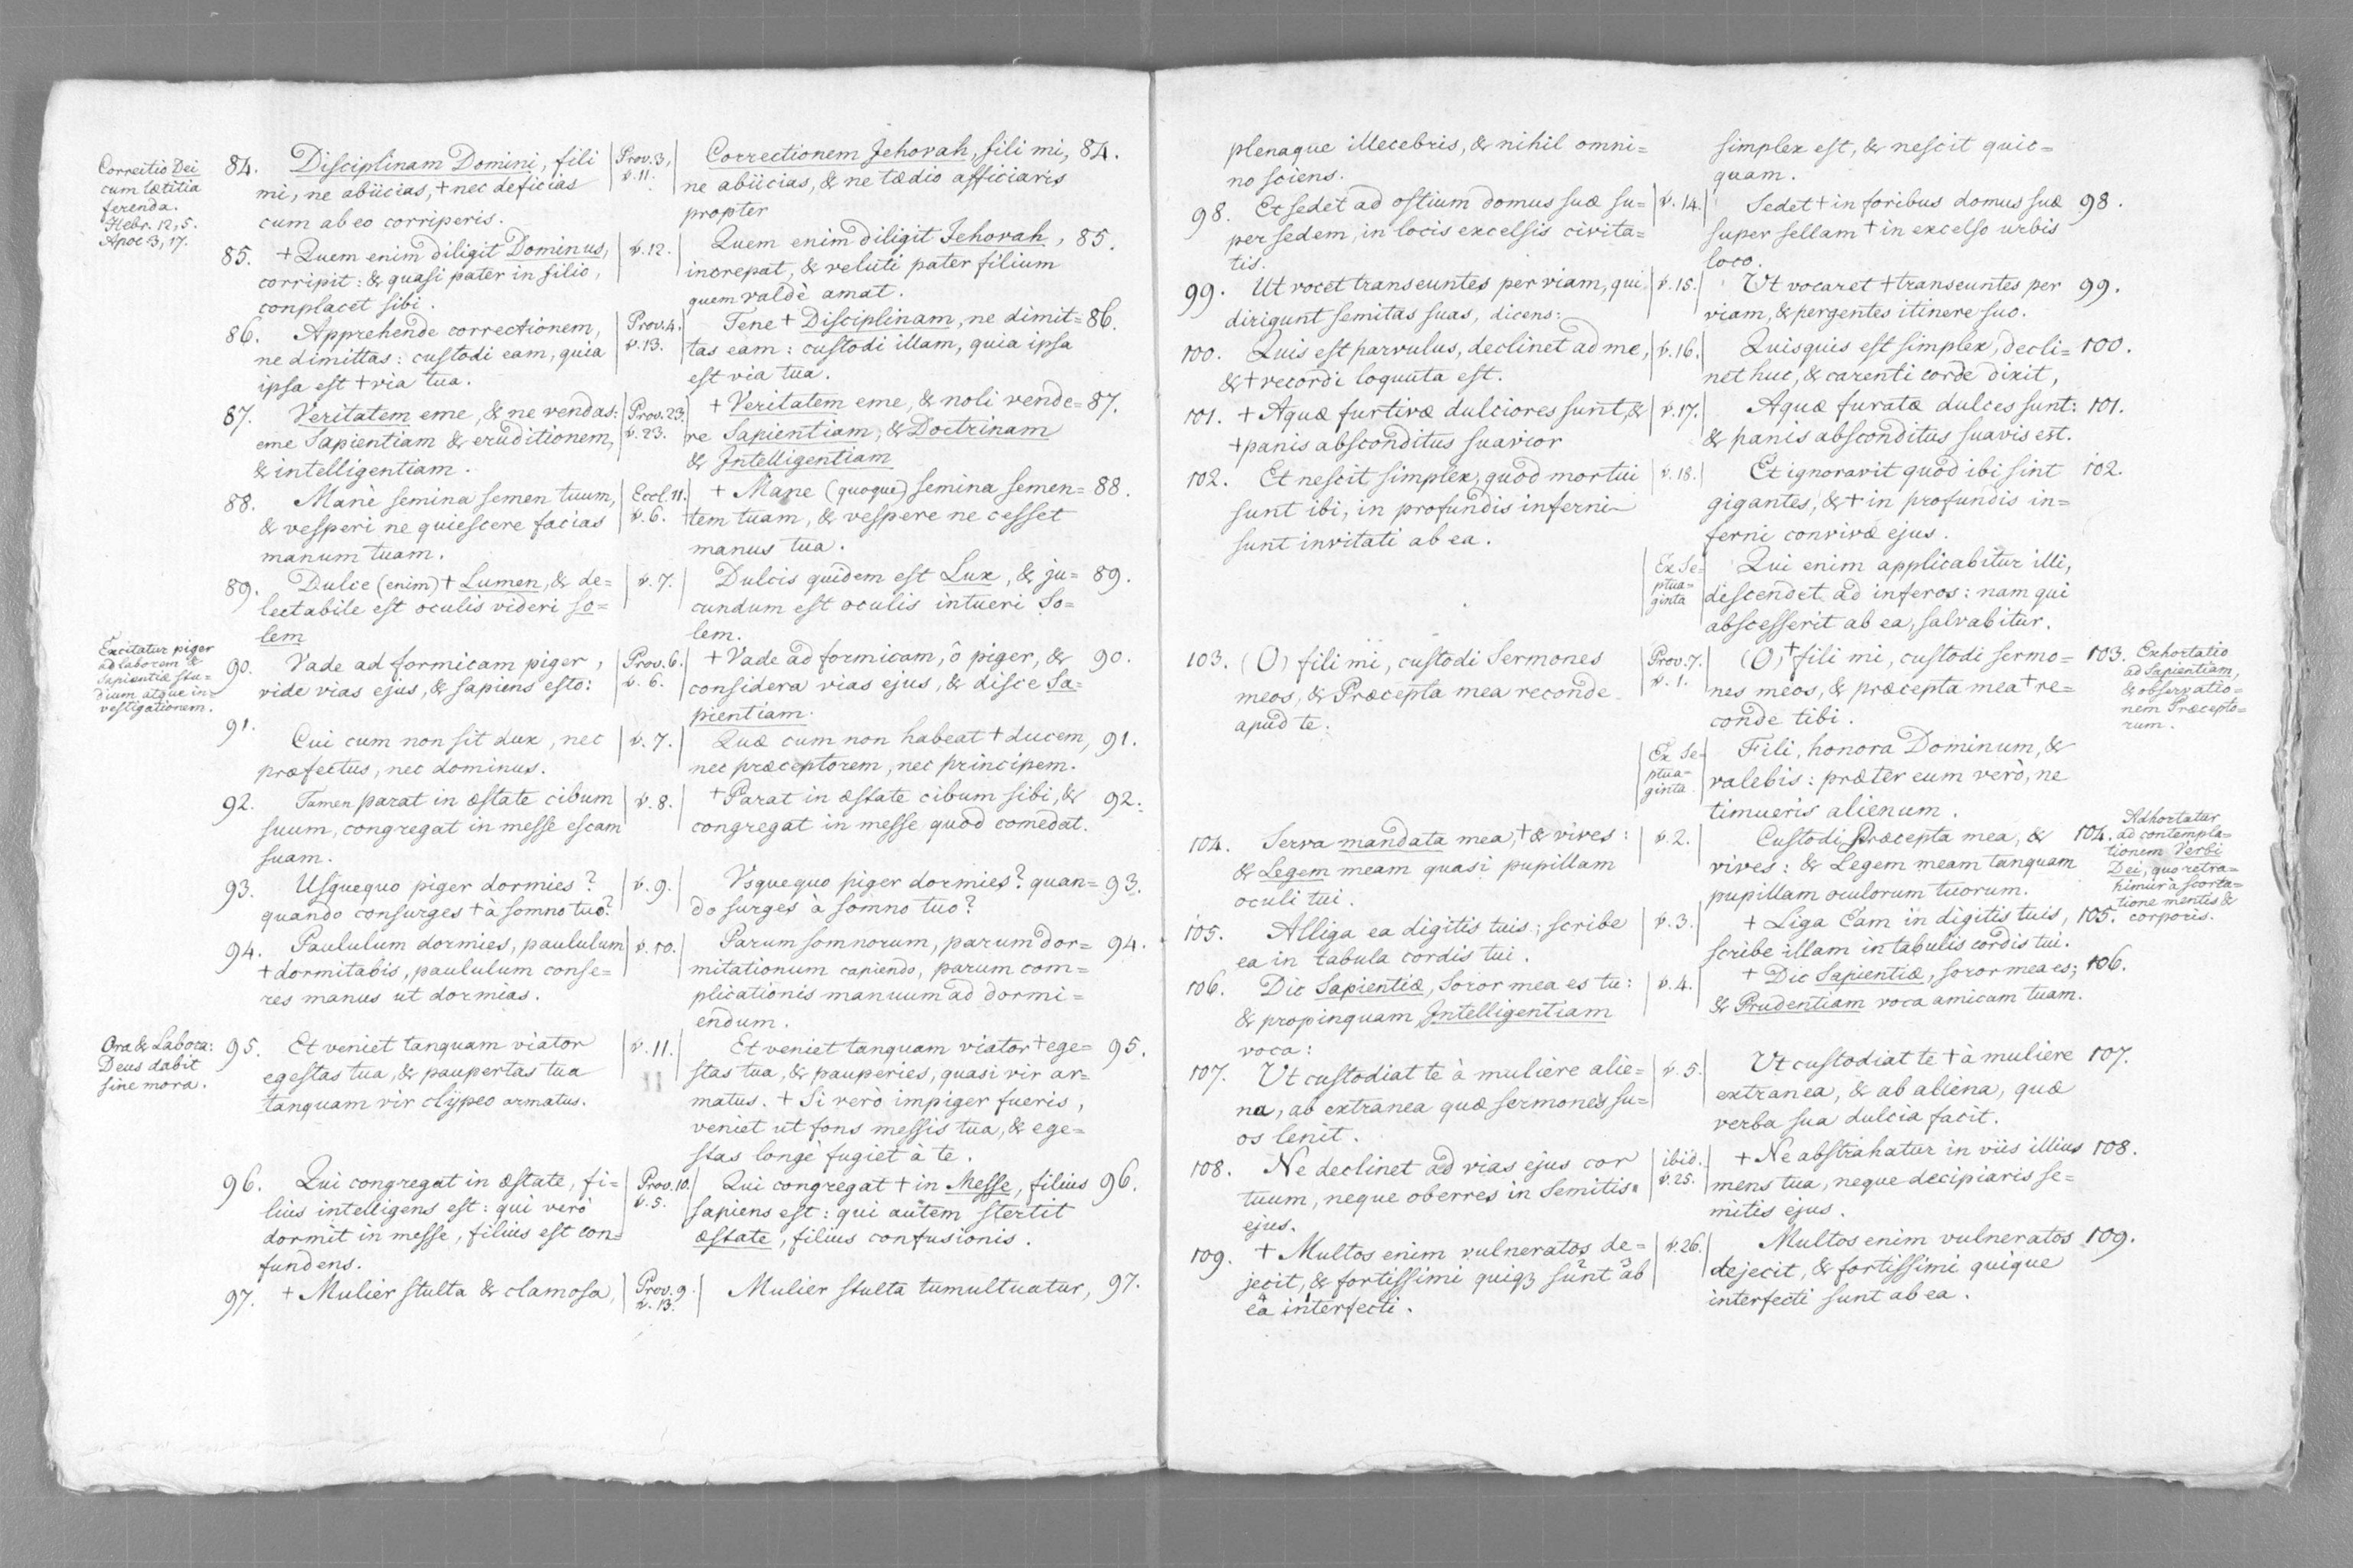 Correctio Dei
cum lætitia
ferenda.
Hebr. 12, 5.
Apoc 3, 17.
84. Disciplinam Domini, fili
mi, ne abiicias, + nec deficias
cum ab eo corriperis.
Prov. 3,
v. 11.
Correctionem Jehovah, fili mi, 84.
ne abiicias, & ne tædio afficiaris
propter
85. + Quem enim diligit Dominus,
corripit: & quasi pater in filio,
conplacet sibi.
v. 12.
Quem enim diligit Jehovah, 85.
increpat, & veluti pater filium
quem valdè amat.
86. Apprehende correctionem,
ne dimittas: custodi eam, quia
ipsa est + via tua.
Prov. 4.
v. 13.
Tene + Disciplinam, ne dimit= 86.
tas eam: custodi illam, quia ipsa
est via tua.
87. Veritatem eme, & ne vendas:
eme Sapientiam & eruditionem,
& intelligentiam.
Prov. 23.
v. 23.
+ Veritatem eme, & noli vende= 87.
re Sapientiam, & Doctrinam
& Intelligentiam
88. Manè semina semen tuum,
& vesperi ne quiescere facias
manum tuam.
Eccl. 11.
v. 6.
+ Mane (quoque) semina semen= 88.
tem tuam, & vespere ne cesset
manus tua.
89. Dulce (enim) + Lumen, & de=
lectabile est oculis videri so=
lem
v. 7.
Dulcis quidem est Lux, & ju= 89.
cundum est oculis intueri So=
lem.
Excitatur piger
ad laborem &
Sapientiæ stu=
dium atque in=
vestigationem.
90. Vade ad formicam piger,
vide vias ejus, & sapiens esto:
Prov. 6.
v. 6.
+ Vade ad formicam, ô piger, & 90.
considera vias ejus, & disce Sa=
pientiam.
91. Cui cum non sit dux, nec
præfectus, nec dominus.
v. 7.
Quæ cum non habeat + ducem, 91.
nec præceptorem, nec principem.
92. Tamen parat in æstate cibum
suum, congregat in messe escam
suam.
v. 8.
+ Parat in æstate cibum sibi, & 92.
congregat in messe quod comedat.
93. Usquequo piger dormies?
quando consurges + à somno tuo?
v. 9.
Vsquequo piger dormies? quan= 93.
do surges à somno tuo?
94. Paululum dormies, paululum
+ dormitabis, paululum conse=
res manus ut dormias.
v. 10.
Parum somnorum, parum dor= 94.
mitationum capiendo, parum com=
plicationis manuum ad dormi=
endum.
Ora & Labora:
Deus dabit
sine mora.
95. Et veniet tanquam viator
egestas tua, & paupertas tua
tanquam vir clypeo armatus.
v. 11.
Et veniet tanquam viator + ege= 95.
stas tua, & pauperies, quasi vir ar=
matus. + Si verò impiger fueris,
veniet ut fons messis tua, & ege=
stas longè fugiet à te.
96. Qui congregat in æstate, fi=
lius intelligens est: qui verò
dormit in messe, filius est con=
fundens.
Prov. 10.
v. 5.
Qui congregat + in Messe, filius 96.
sapiens est: qui autem stertit
æstate, filius confusionis.
97. + Mulier stulta & clamosa,
Prov. 9.
v. 13.
Mulier stulta tumultuatur, 97.
plenaque illecebris, & nihil omni=
no sciens.
simplex est, & nescit quic=
quam.
98. Et sedet ad ostium domus suæ su=
per sedem, in locis excelsis civita=
tis.
v. 14.
Sedet + in foribus domus suæ 98.
super sellam + in excelso urbis
loco.
99. Ut vocet transeuntes per viam, qui
dirigunt semitas suas, dicens:
v. 15.
Vt vocaret + transeuntes per 99.
viam, & pergentes itinere suo.
100. Quis est parvulus, declinet ad me,
& + vecordi loquuta est.
v. 16.
Quisquis est simplex, decli= 100.
net huc, & carenti corde dixit,
101. + Aquæ furtivæ dulciores sunt, &
+ panis absconditus suavior
v. 17.
Aquæ furatæ dulces sunt: 101.
& panis absconditus suavis est.
102. Et nescit simplex, quod mortui
sunt ibi, in profundis inferni
sunt invitati ab ea.
v. 18.
Et ignoravit quòd ibi sint 102.
gigantes, & + in profundis in=
ferni convivæ ejus.
Ex Se=
ptua=
ginta
Qui enim applicabitur illi,
discendet ad inferos: nam qui
abscesserit ab ea, salvabitur.
103. (O) fili mi, custodi Sermones
meos, & Præcepta mea reconde
apud te.
Prov. 7.
v. 1.
(O) + fili mi, custodi sermo= 103.
nes meos, & præcepta mea + re=
conde tibi.
Exhortatio
ad Sapientiam,
& observatio=
nem Præcepto=
rum.
Ex Se=
ptua=
ginta
Fili, honora Dominum, &
valebis: præter eum verò, ne
timueris alienum.
104. Serva mandata mea, + & vives:
& Legem meam quasi pupillam
oculi tui.
v. 2.
Custodi Præcepta mea, & 104.
vives: & Legem meam tanquam
pupillam oculorum tuorum.
Adhortatur
ad contempla=
tionem Verbi
Dei, quo retra=
himur à scorta=
tione mentis &
corporis.
105. Alliga ea digitis tuis; scribe
ea in tabula cordis tui.
v. 3.
+ Liga Eam in digitis tuis, 105.
scribe illam in tabulis cordis tui.
106. Dic Sapientiæ, Soror mea es tu:
& propinquam Intelligentiam
voca:
v. 4.
+ Dic Sapientiæ, soror mea es; 106.
& Prudentiam voca amicam tuam.
107. Vt custodiat te à muliere alie=
na, ab extranea quæ sermones su=
os lenit.
v. 5.
Vt custodiat te + à muliere 107.
extranea, & ab aliena, quæ
verba sua dulcia facit.
108. Ne declinet ad vias ejus cor
tuum, neque oberres in Semitis
ejus.
ibid.
v. 25.
+ Ne abstrahatur in viis illius 108.
mens tua, neque decipiaris se=
mitis ejus.
109. + Multos enim vulneratos de=
jecit, & fortissimi quiqz sunt ab
ea interfecti.
v. 26.
Multos enim vulneratos 109.
dejecit, & fortissimi quique
interfecti sunt ab ea.